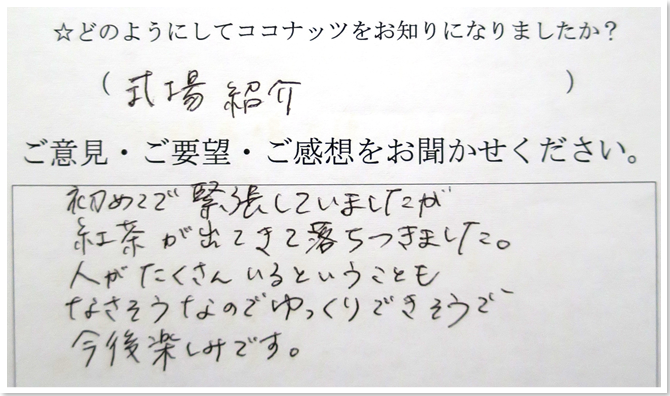 ☆どのようにしてココナッツをお知りになりましたか？
( 式場 紹介 )
ご意見・ご要望・ご感想をお聞かせください。
初めてで緊張していましたが
紅茶が出てきて落ちつきました。
人がたくさんいるということも
なさそうなのでゆっくりできそうで
今後楽しみです。